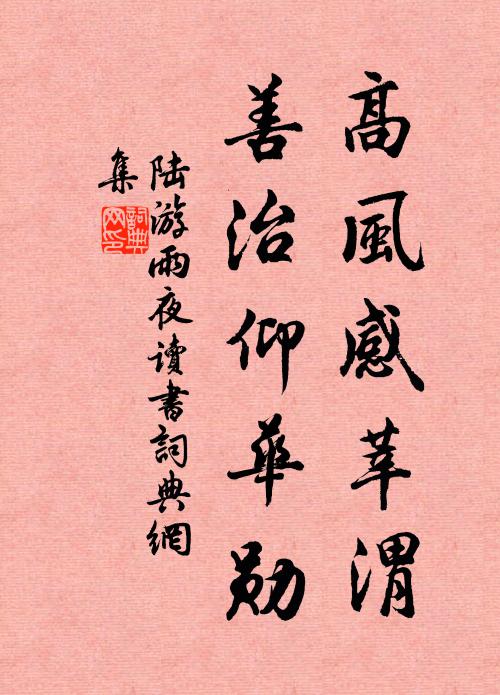 高風感莘渭
善治仰華勛
陸游雨夜讀書詞典網
集
詞典
网印